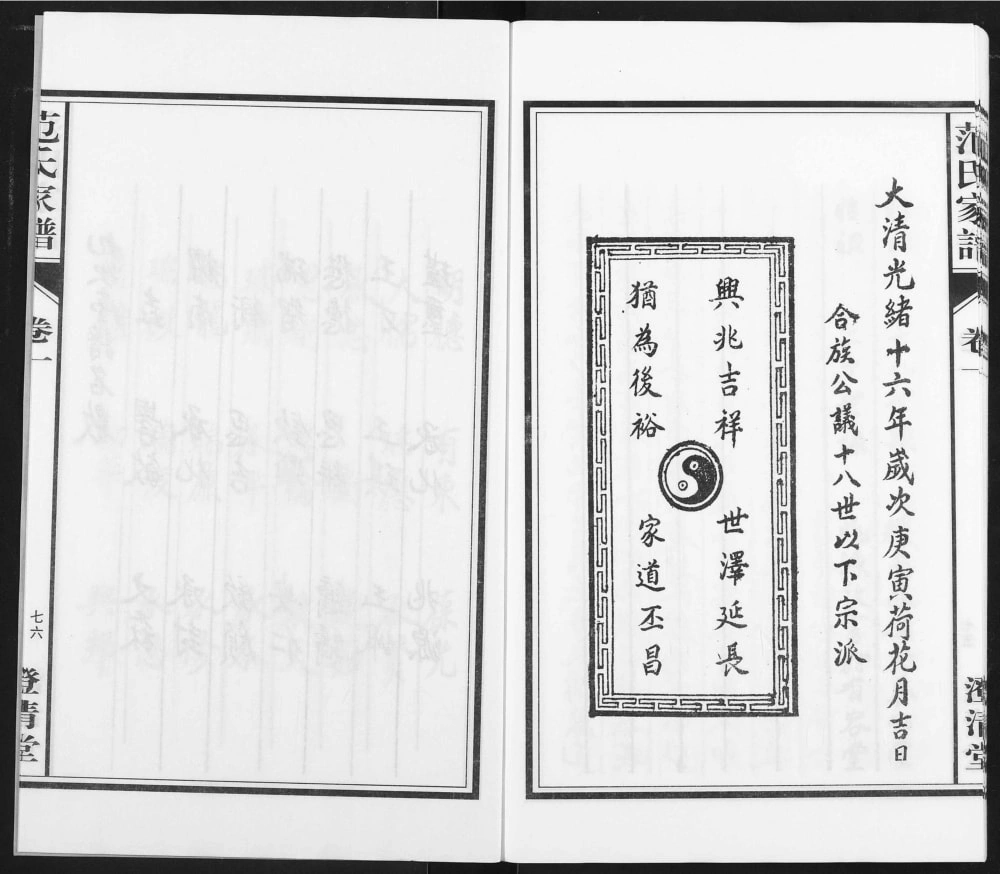 范氏家譜
卷一
澄清堂
大清光緒十六年歲次庚寅荷花月吉日
合族公議十八世以下宗派
興兆吉祥 世澤延長
猶為後裕 家道丕昌
范氏家譜
卷一
七六
澄清堂